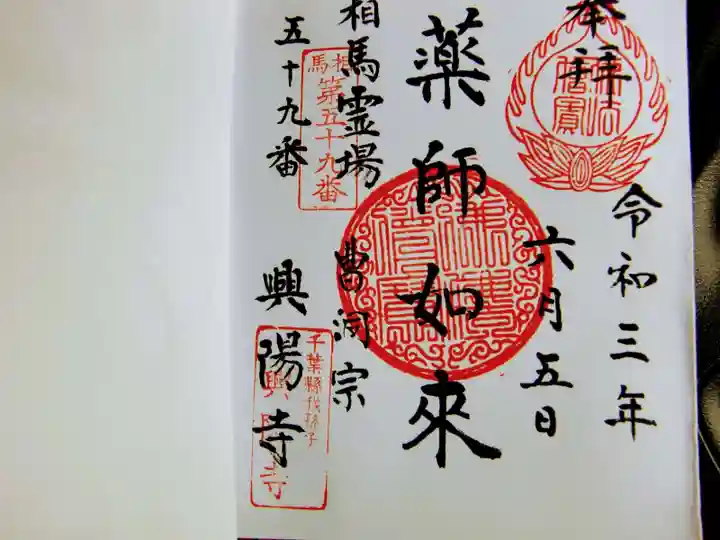 奉拝
令和三年
六月五日
薬師如来
相馬霊場
曹洞宗
五十九番
興陽寺
佛法僧寳
相馬
第五十九番
千葉縣我孫子
興陽寺